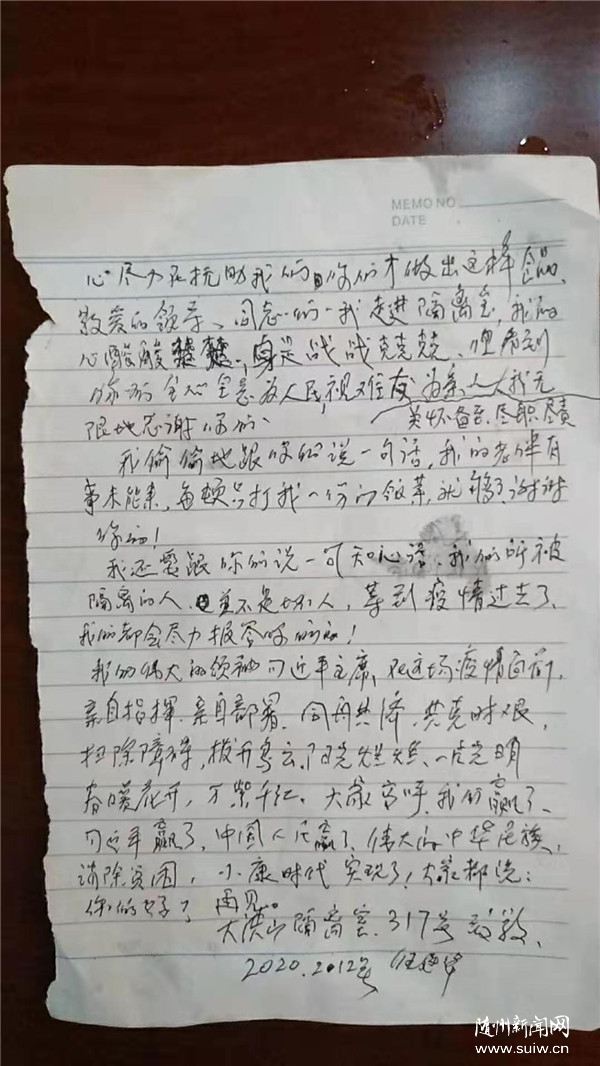 MEMO NO.
DATE
心尽力在扰助我们,你们才做出这样
敬爱的领导、同志们:我走进隔离室,我的
心酸酸楚楚,身是战战兢兢,但看到
你们全心全意为人民,视难友为亲人,我无
关怀备至、尽职尽责
限地感谢你们、
我偷偷地跟你们说一句话,我的老伴有
事未能来,每顿只打我一份的饭菜,就够了,谢谢
你们!
我还要跟你们说一句知心话,我们所被
隔离的人,并不是坏人,等到疫情过去了、
我们都会尽力报答你们的!
我们伟大的领袖习近平主席,在这场疫情面前,
亲自指挥、亲自部署、同舟共济、共克时艰,
扫除障碍,拨开乌云、阳光灿烂、一片光明
春暖花开,万紫千红。大家高呼,我们赢了、
习近平赢了,中国人民赢了、伟大的中华民族、
消除贫困,小康时代实现了!大家都说:
你们好了 再见。
大洪山隔离室.317号 致敬、
2020.2.12号
随州新闻网
www.suiw.cn